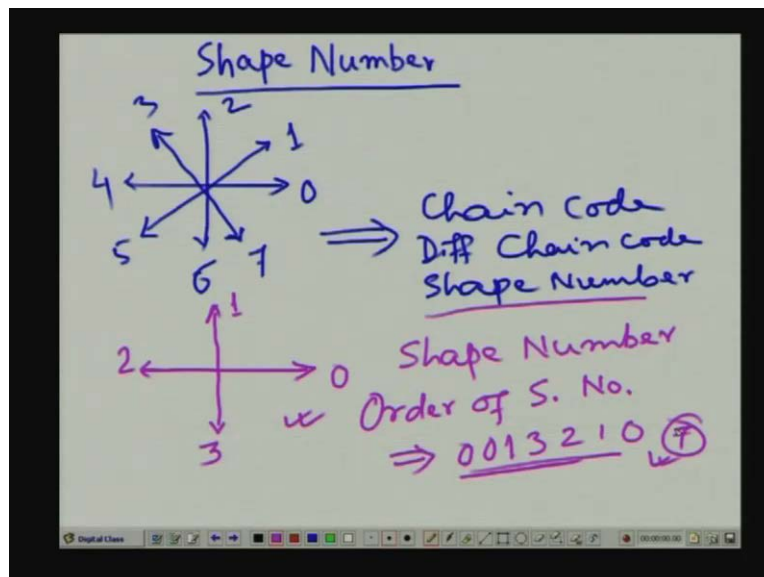 Shape Number
3 2 1
4 0
5 6 7
Chain Code
Diff Chain code
Shape Number
1
2 0
3
Shape Number
Order of S. No.
⇒ 0013210 7
Digital Class
00:00:00.00